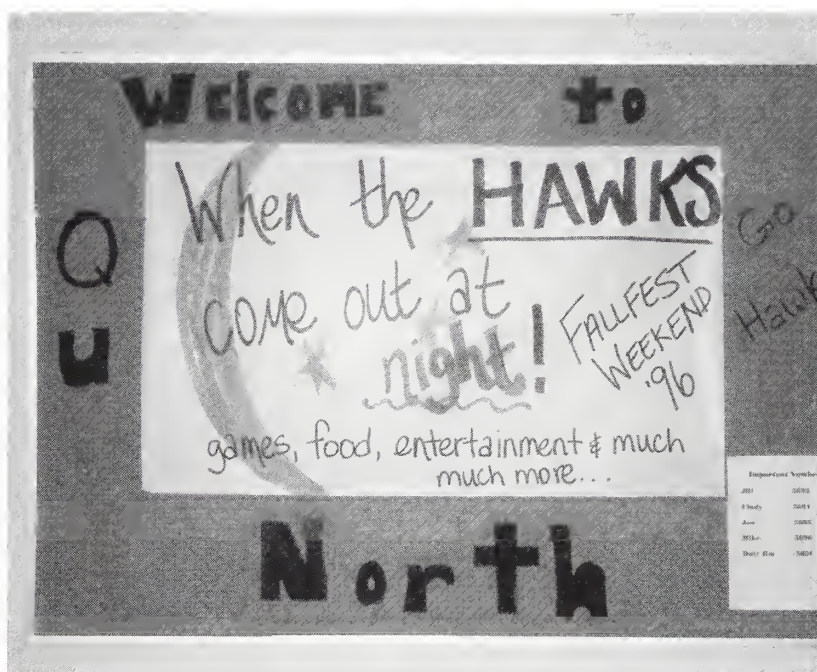 Welcome to
Qu
When the HAWKS
come out at
night!
FALLFEST
WEEKEND
'96
games, food, entertainment & much
much more...
Go
Hawk
North
Important Number
Jill
Mike